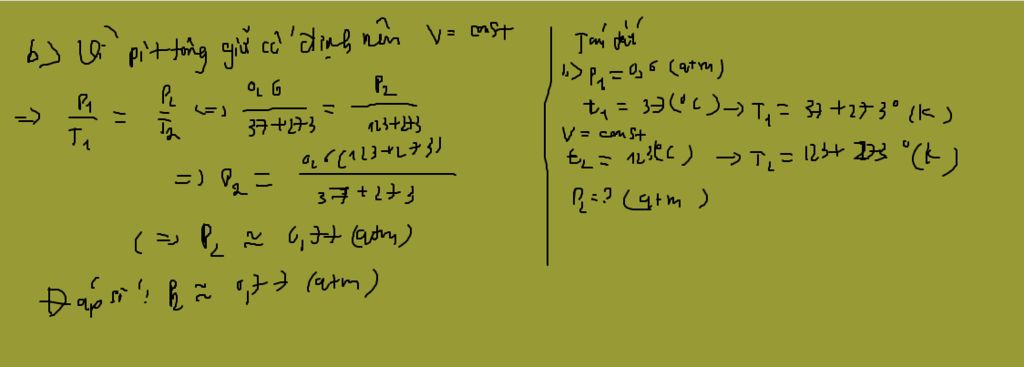 b) Vì pit-tông giữ cố định nên V = const
=> P1/T1 = P2/T2 <=> 0,6/(37+273) = P2/(123+273)
=> P2 = 0,6(123+273)/(37+273)
(=> P2 ≈ 0,77 (atm)
Đáp số: P2 ≈ 0,77 (atm)
Tóm tắt
b) P1 = 0,6 (atm)
t1 = 37 (°C) → T1 = 37 + 273° (K)
V = const
t2 = 123 (°C) → T2 = 123 + 273 °(K)
P2 = ? (atm)